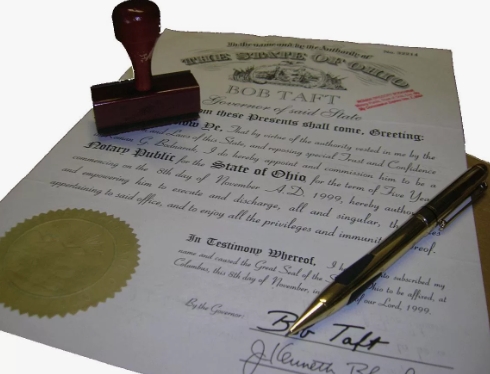 In the name and by the Authority of
THE STATE OF OHIO
BOB TAFT
Governor of said State
these Presents shall come, Greeting:
Know Ye, That by virtue of the authority vested in me by the
and laws of this State, and reposing special Trust and Confidence
G. I do hereby appoint and commission him to be a
Notary Public, for the State of Ohio for the term of Five Years
commencing on the 8th day of November A.D. 1999, hereby
and empowering him to execute and discharge, all and singular, the
appertaining to said office, and to enjoy all the privileges and thereof.
In Testimony Whereof, I subscribed my
name and caused the Great Seal of the Ohio to be affixed, at
Columbus, this 8th day of November, of our Lord, 1999.
By the Governor:
Bob Taft
J Kenneth